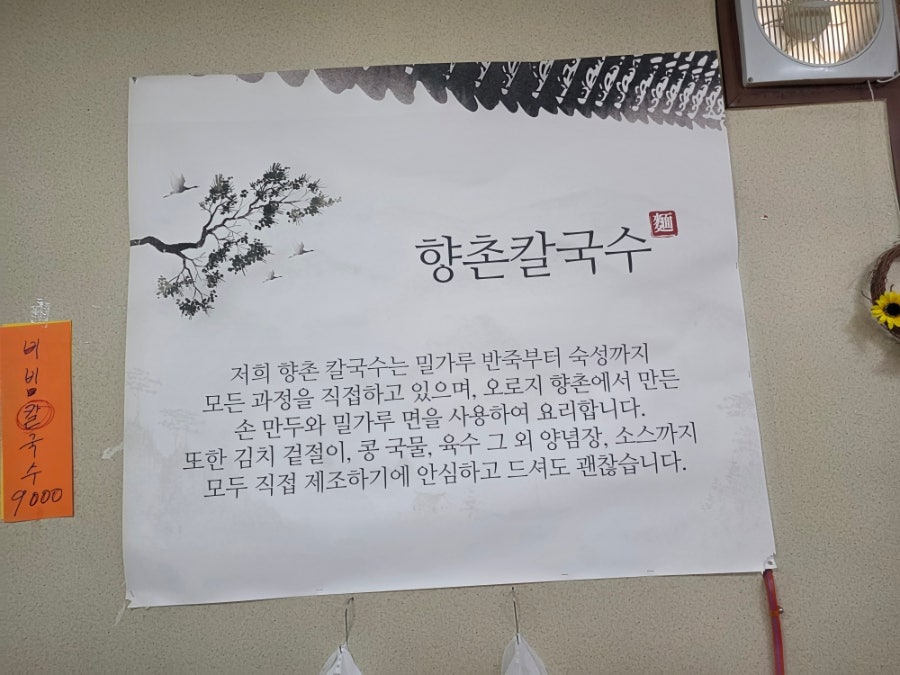 향촌칼국수 麵
저희 향촌 칼국수는 밀가루 반죽부터 숙성까지
모든 과정을 직접하고 있으며, 오로지 향촌에서 만든
손 만두와 밀가루 면을 사용하여 요리합니다.
또한 김치 겉절이, 콩 국물, 육수 그 외 양념장, 소스까지
모두 직접 제조하기에 안심하고 드셔도 괜찮습니다.
비
빔
칼
국
수
9000